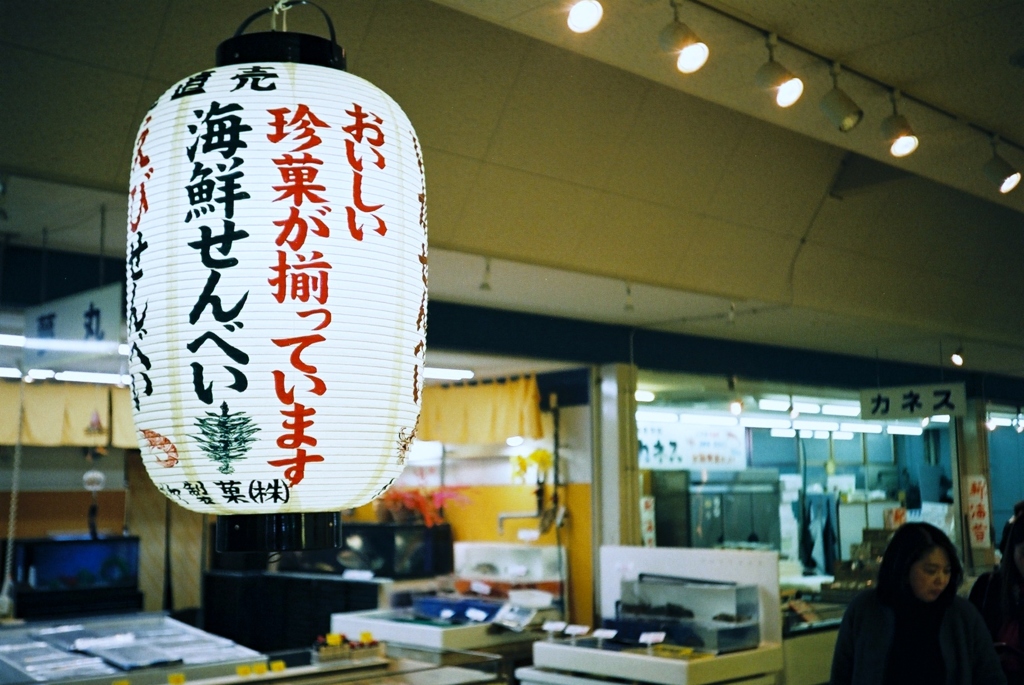 直売
おいしい
珍菓が揃っています
海鮮せんべい
えびせんべい
製菓(株)
丸
カネス
カネス